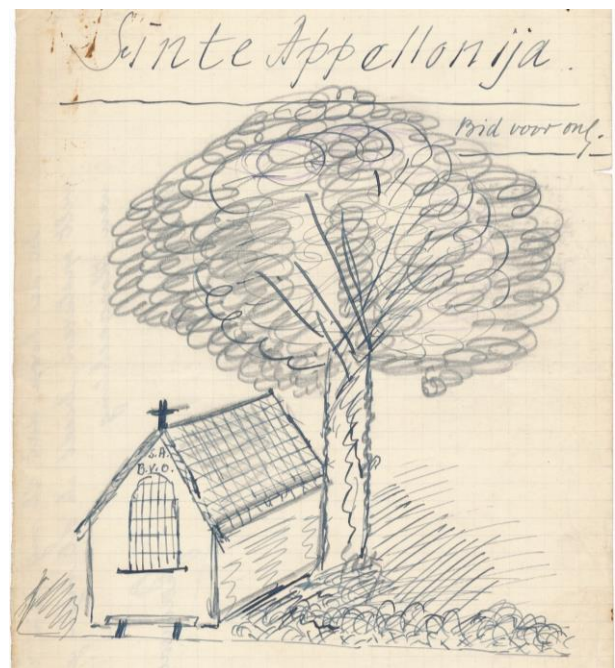 Sinte Appellonija.
Bid voor ons.
S.A.
B.V.O.